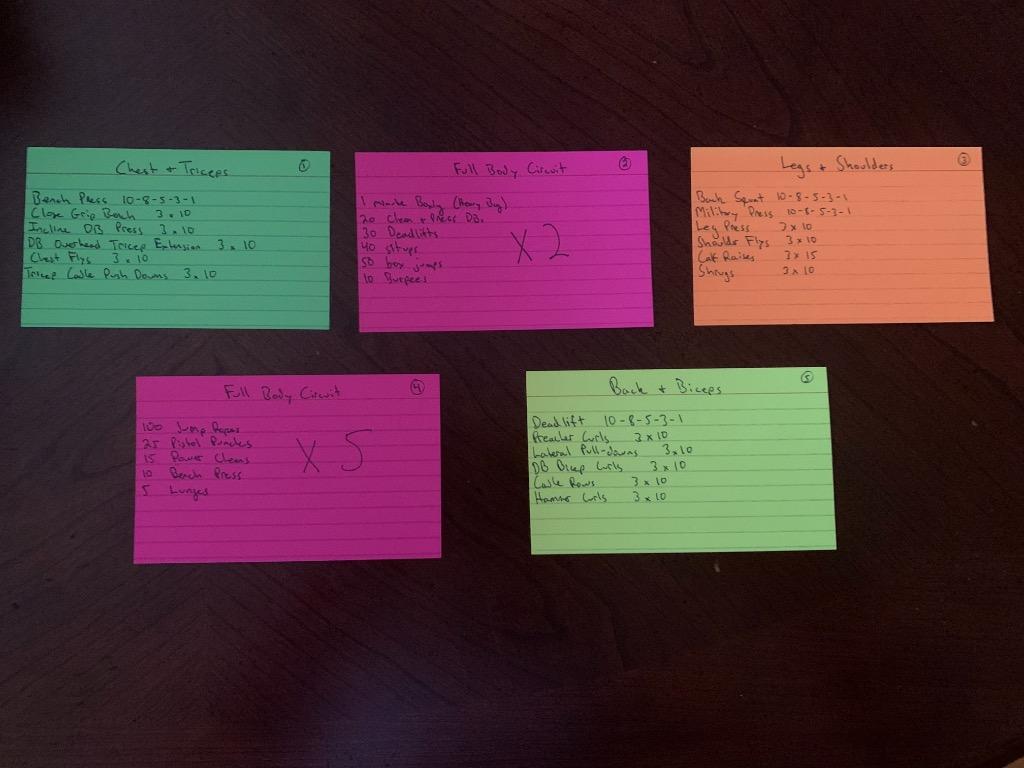 Chest + Triceps 1
Bench Press 10-8-5-3-1
Close Grip Bench 3 x 10
Incline DB Press 3 x 10
DB Overhead Tricep Extension 3 x 10
Chest Flys 3 x 10
Tricep Cable Push Downs 3 x 10
Full Body Circuit 2
1 minute Body (Heavy Bag)
20 Clean + Press DB.
30 Deadlifts
40 situps
50 box jumps
10 Burpees
X 2
Legs + Shoulders 3
Back Squat 10-8-5-3-1
Military Press 10-8-5-3-1
Leg Press 3 x 10
Shoulder Flys 3 x 10
Calf Raises 3 x 15
Shrugs 3 x 10
Full Body Circuit 4
100 Jump Ropes
25 Pistol Punches
15 Power Cleans
10 Bench Press
5 Lunges
X 5
Back + Biceps 5
Deadlift 10-8-5-3-1
Preacher Curls 3 x 10
Lateral Pull-downs 3 x 10
DB Bicep Curls 3 x 10
Cable Rows 3 x 10
Hammer Curls 3 x 10